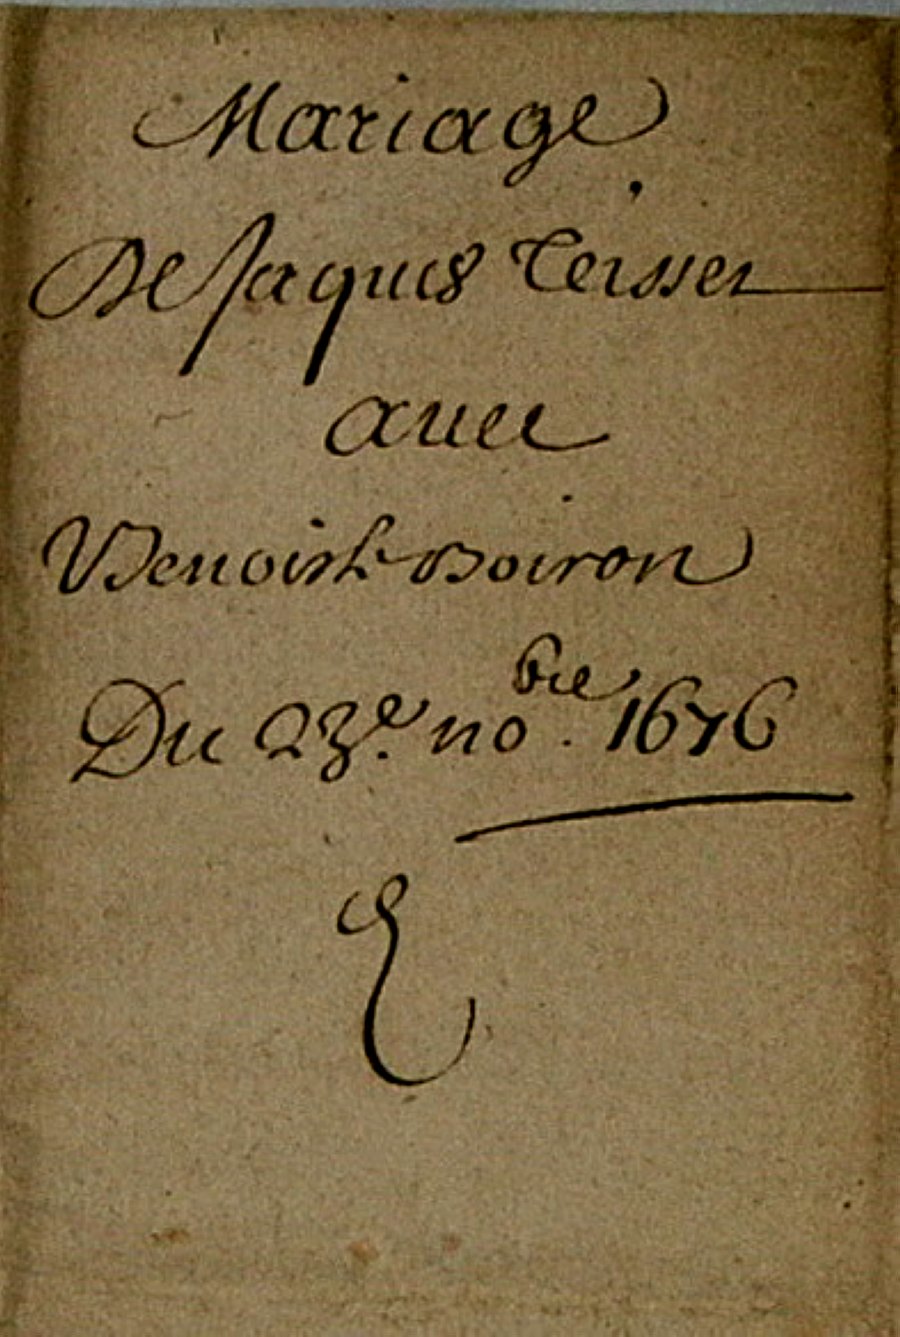 Mariage
De Jaques Teisser
auec
Benoiste Boiron
Du 23e. nobre. 1676